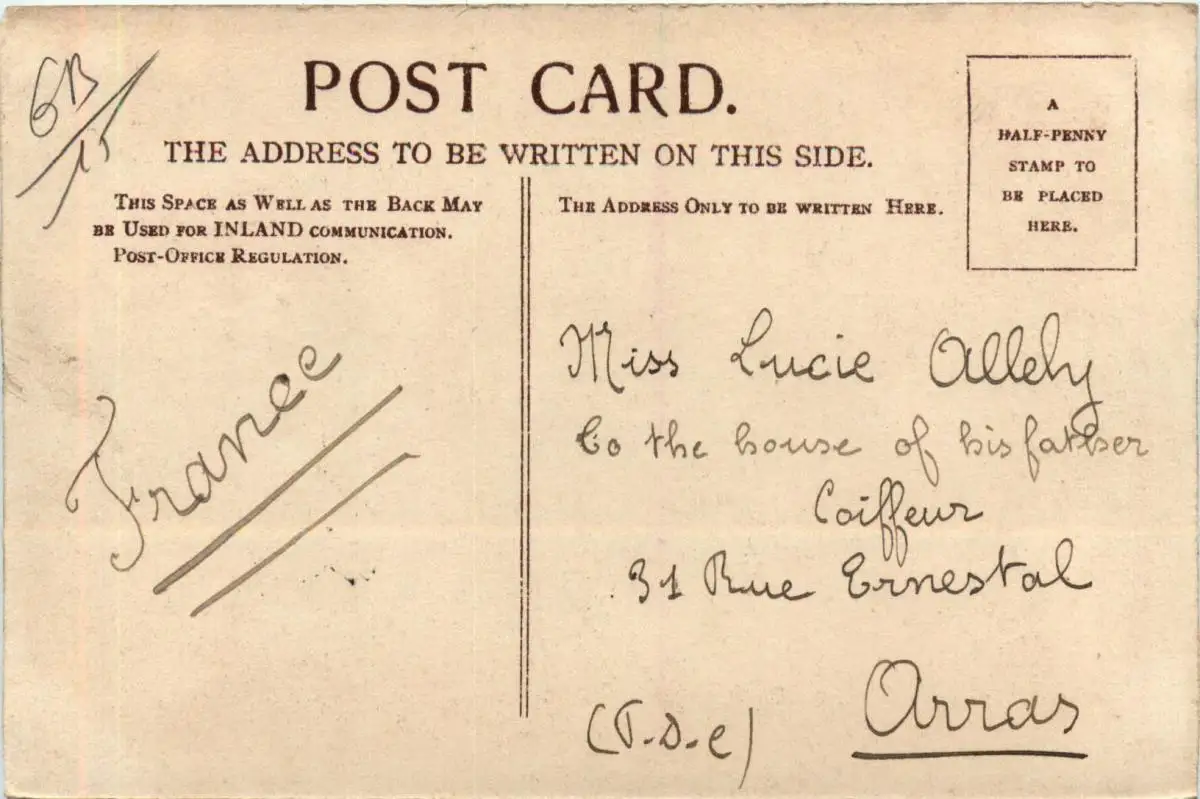 GB
15
POST CARD.
THE ADDRESS TO BE WRITTEN ON THIS SIDE.
THIS SPACE AS WELL AS THE BACK MAY
BE USED FOR INLAND COMMUNICATION.
POST-OFFICE REGULATION.
THE ADDRESS ONLY TO BE WRITTEN HERE.
A
HALF-PENNY
STAMP TO
BE PLACED
HERE.
France
Miss Lucie Allehy
To the house of his father
Coiffeur
31 Rue Ernestal
Arras
(P.-D.-C)